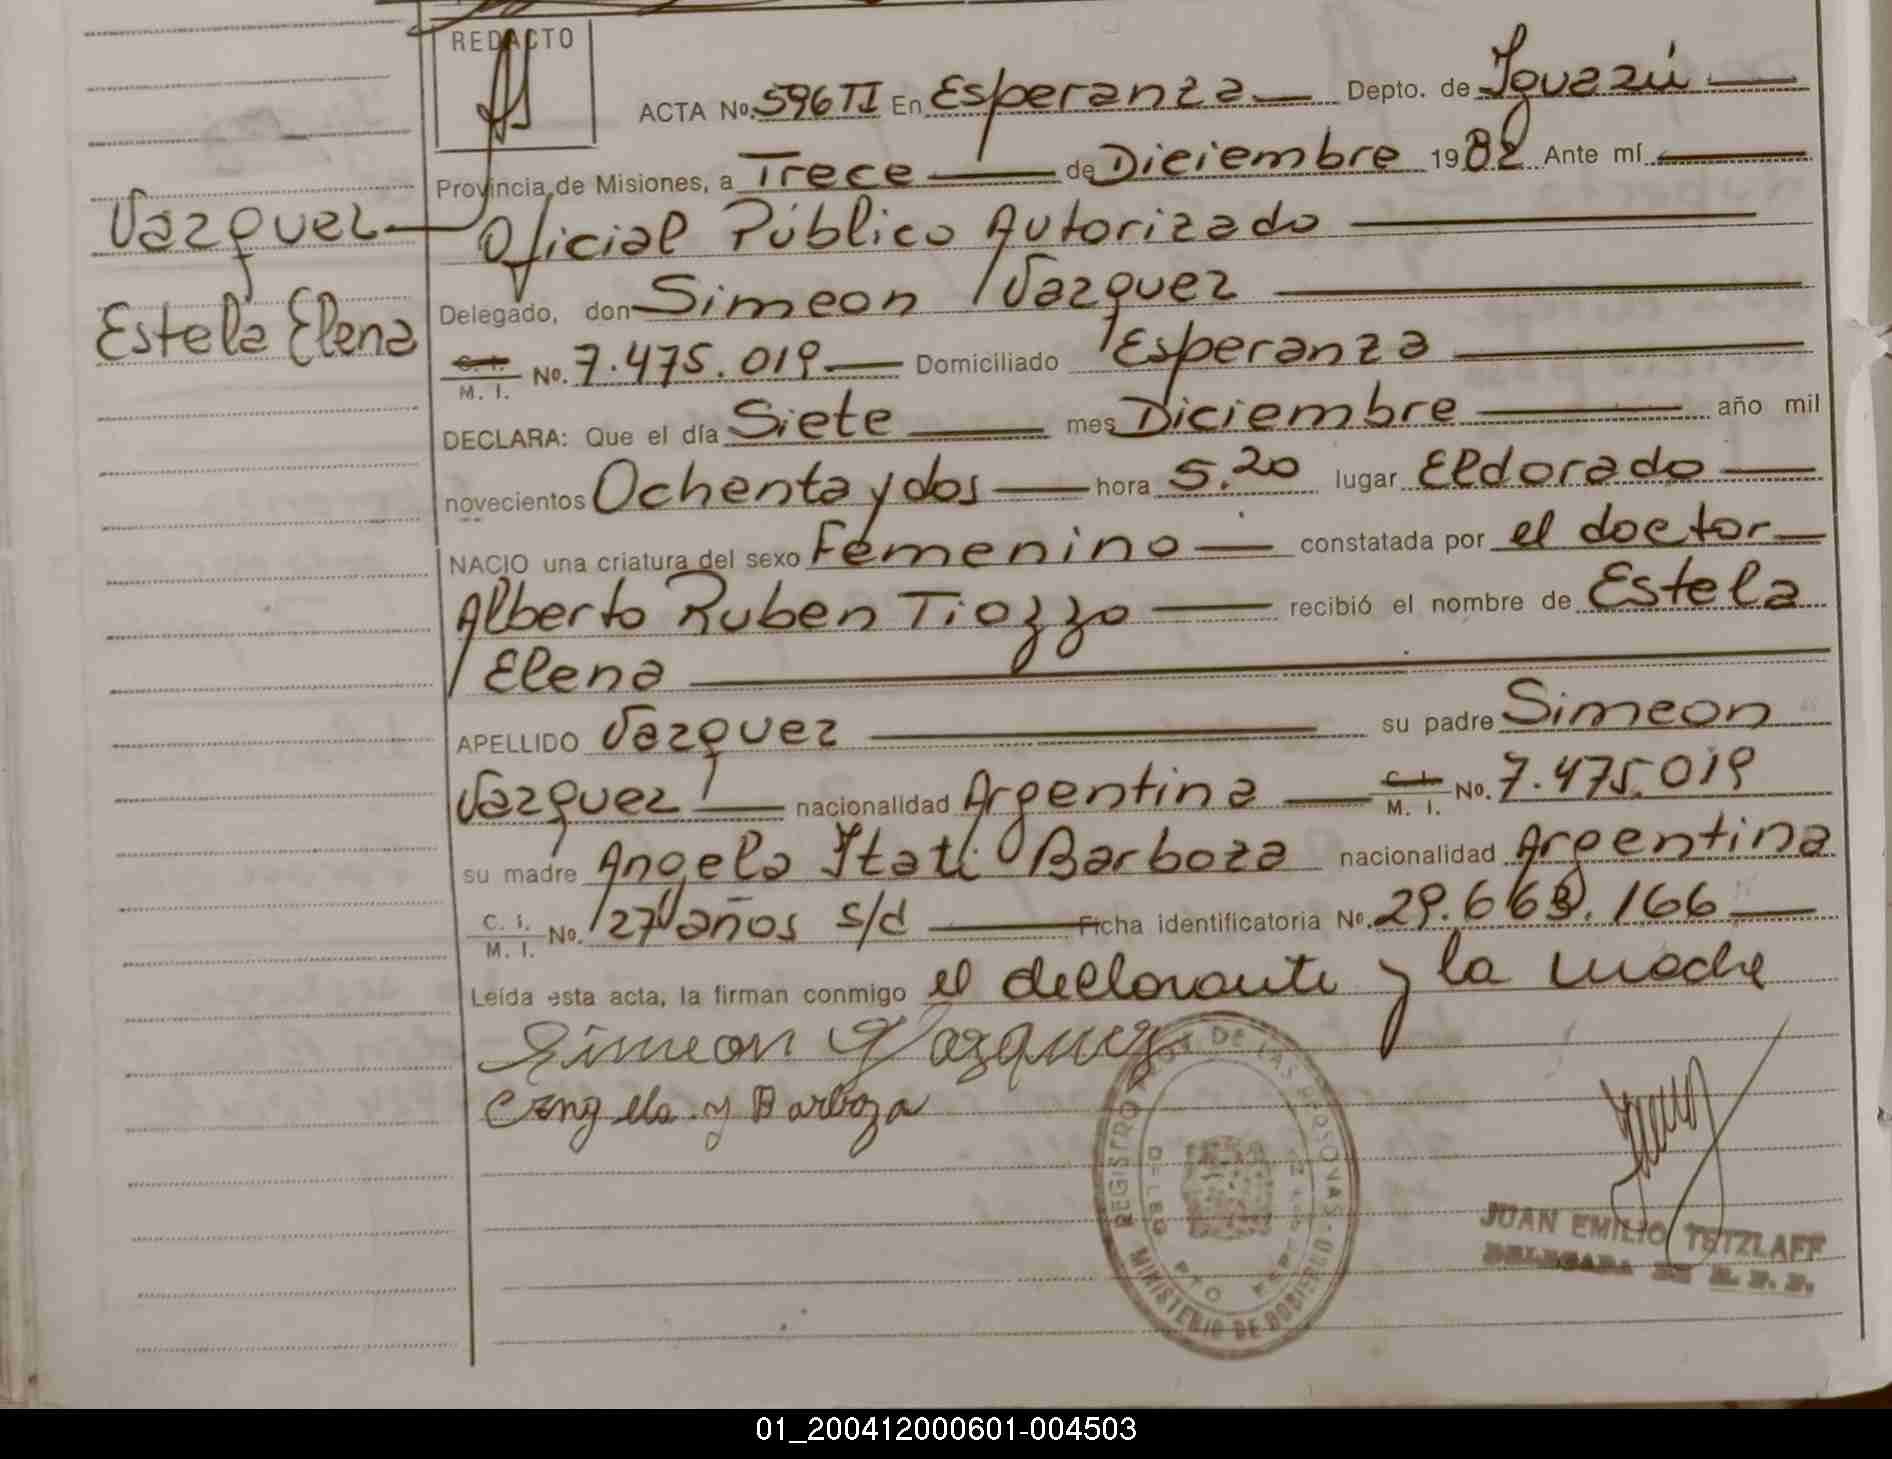 REDACTO
ACTA No. 596 TI En Esperanza Depto. de Iguazú
Provincia de Misiones, a Trece de Diciembre 1982 Ante mí
Vazquez
Oficial Público Autorizado
Estela Elena
Delegado, don Simeon Vazquez
C. I. M. I. No. 7.475.019 Domiciliado Esperanza
DECLARA: Que el día Siete mes Diciembre año mil
novecientos Ochenta y dos hora 5.20 lugar Eldorado
NACIO una criatura del sexo Femenino constatada por el doctor
Alberto Ruben Tiozzo recibió el nombre de Estela
Elena
APELLIDO Vazquez su padre Simeon
Vazquez nacionalidad Argentina C. I. M. I. No. 7.475.019
su madre Angela Itati Barboza nacionalidad Argentina
C. I. M. I. No. 27 años s/d Ficha identificatoria No. 29.663.166
Leída esta acta, la firman conmigo el declarante y la madre
Simeon Vazquez
Angela y Barboza
REGISTRO DE LAS PERSONAS
MINISTERIO DE GOBIERNO
JUAN EMILIO TETZLAFF
01_200412000601-004503